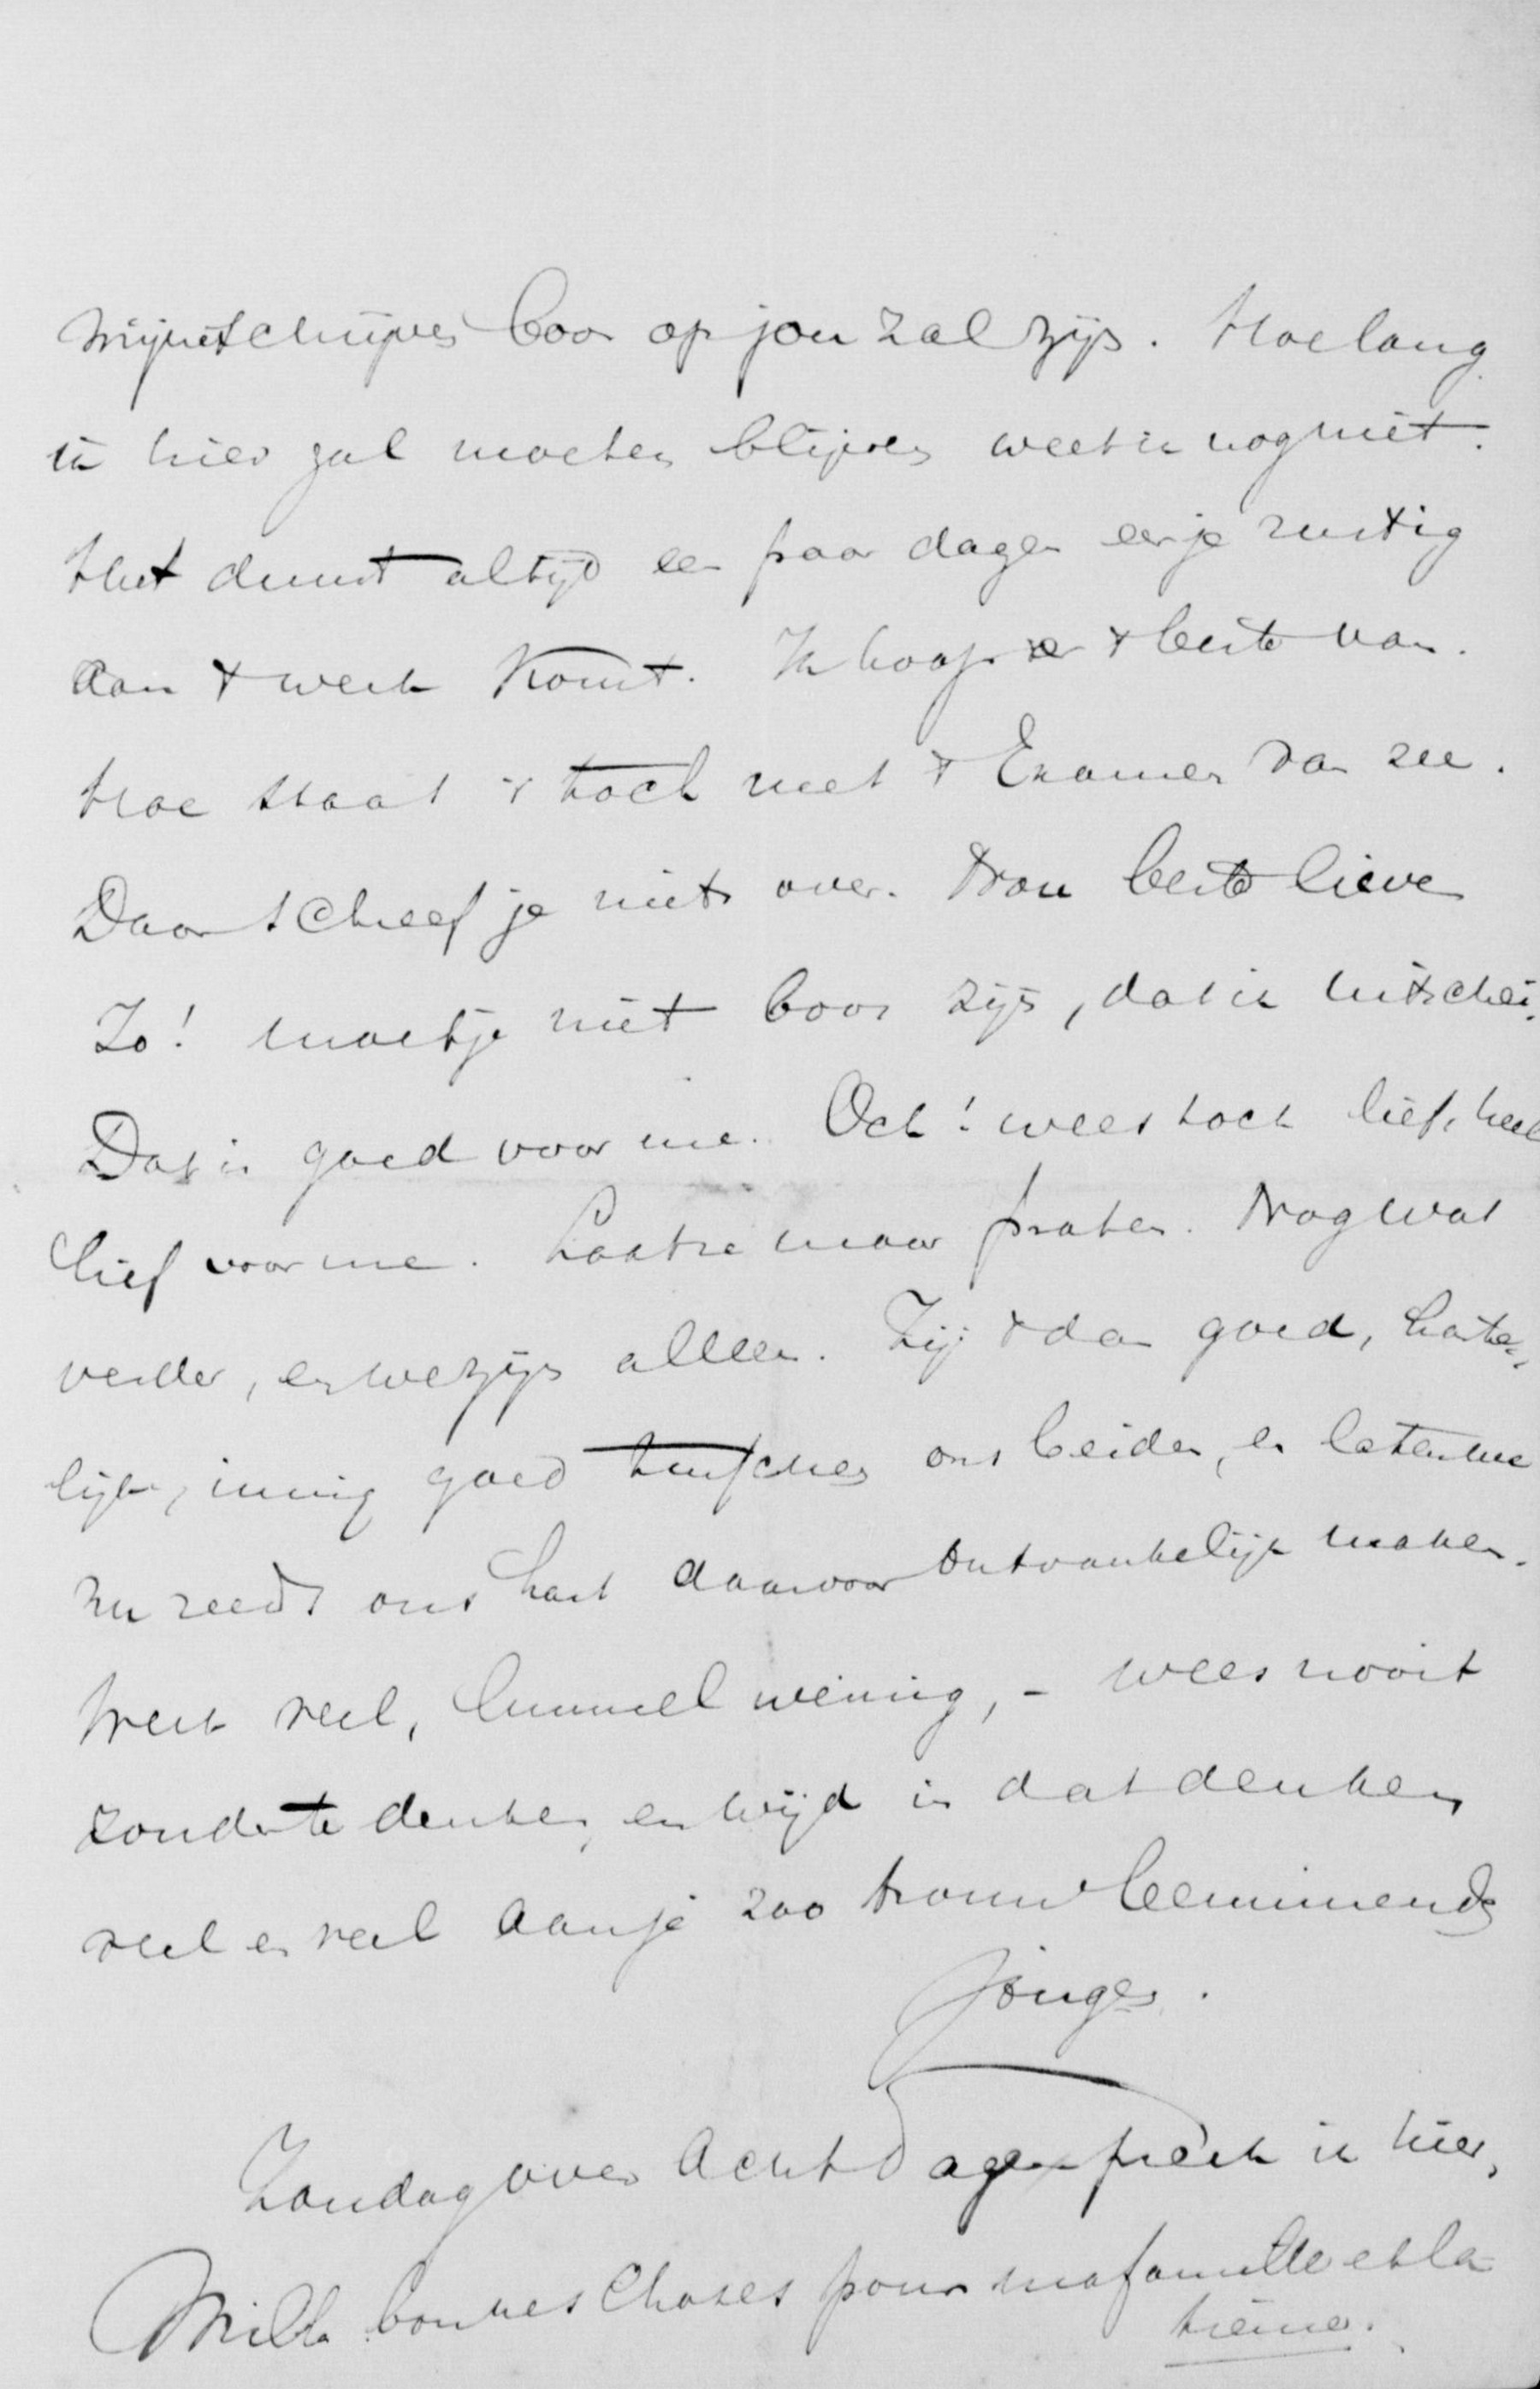 mijn schrijven boos op jou zal zijn. Hoelang
ik hier zal moeten blijven weet ik nog niet.
Het duurt altijd een paar dagen eer je rustig
aan 't werk komt. Ik hoop er 't beste van.
Hoe staat 't toch met 't Examen van zee.
Daar schreef je niets over. Nou beste lieve
Zo! moet je niet boos zijn, dat ik uitschei.
Dat is goed voor me. Och! wees toch lief, heel
lief voor me. Laat ze maar praten. Nog wat
verder, en we zijn alleen. Zij 't dan goed, harte=
lijk, innig goed tusschen ons beiden, en laten we
nu reeds ons hart daarvoor ontvankelijk maken.
Werk veel, lummel weinig, - wees nooit
zonder te denken, en wijd in dat denken
veel en veel aan je zoo trouw beminnende
Jongen.
Zondag over acht dagen preek ik hier,
Mille bonnes choses pour ma famille et la
tienne.